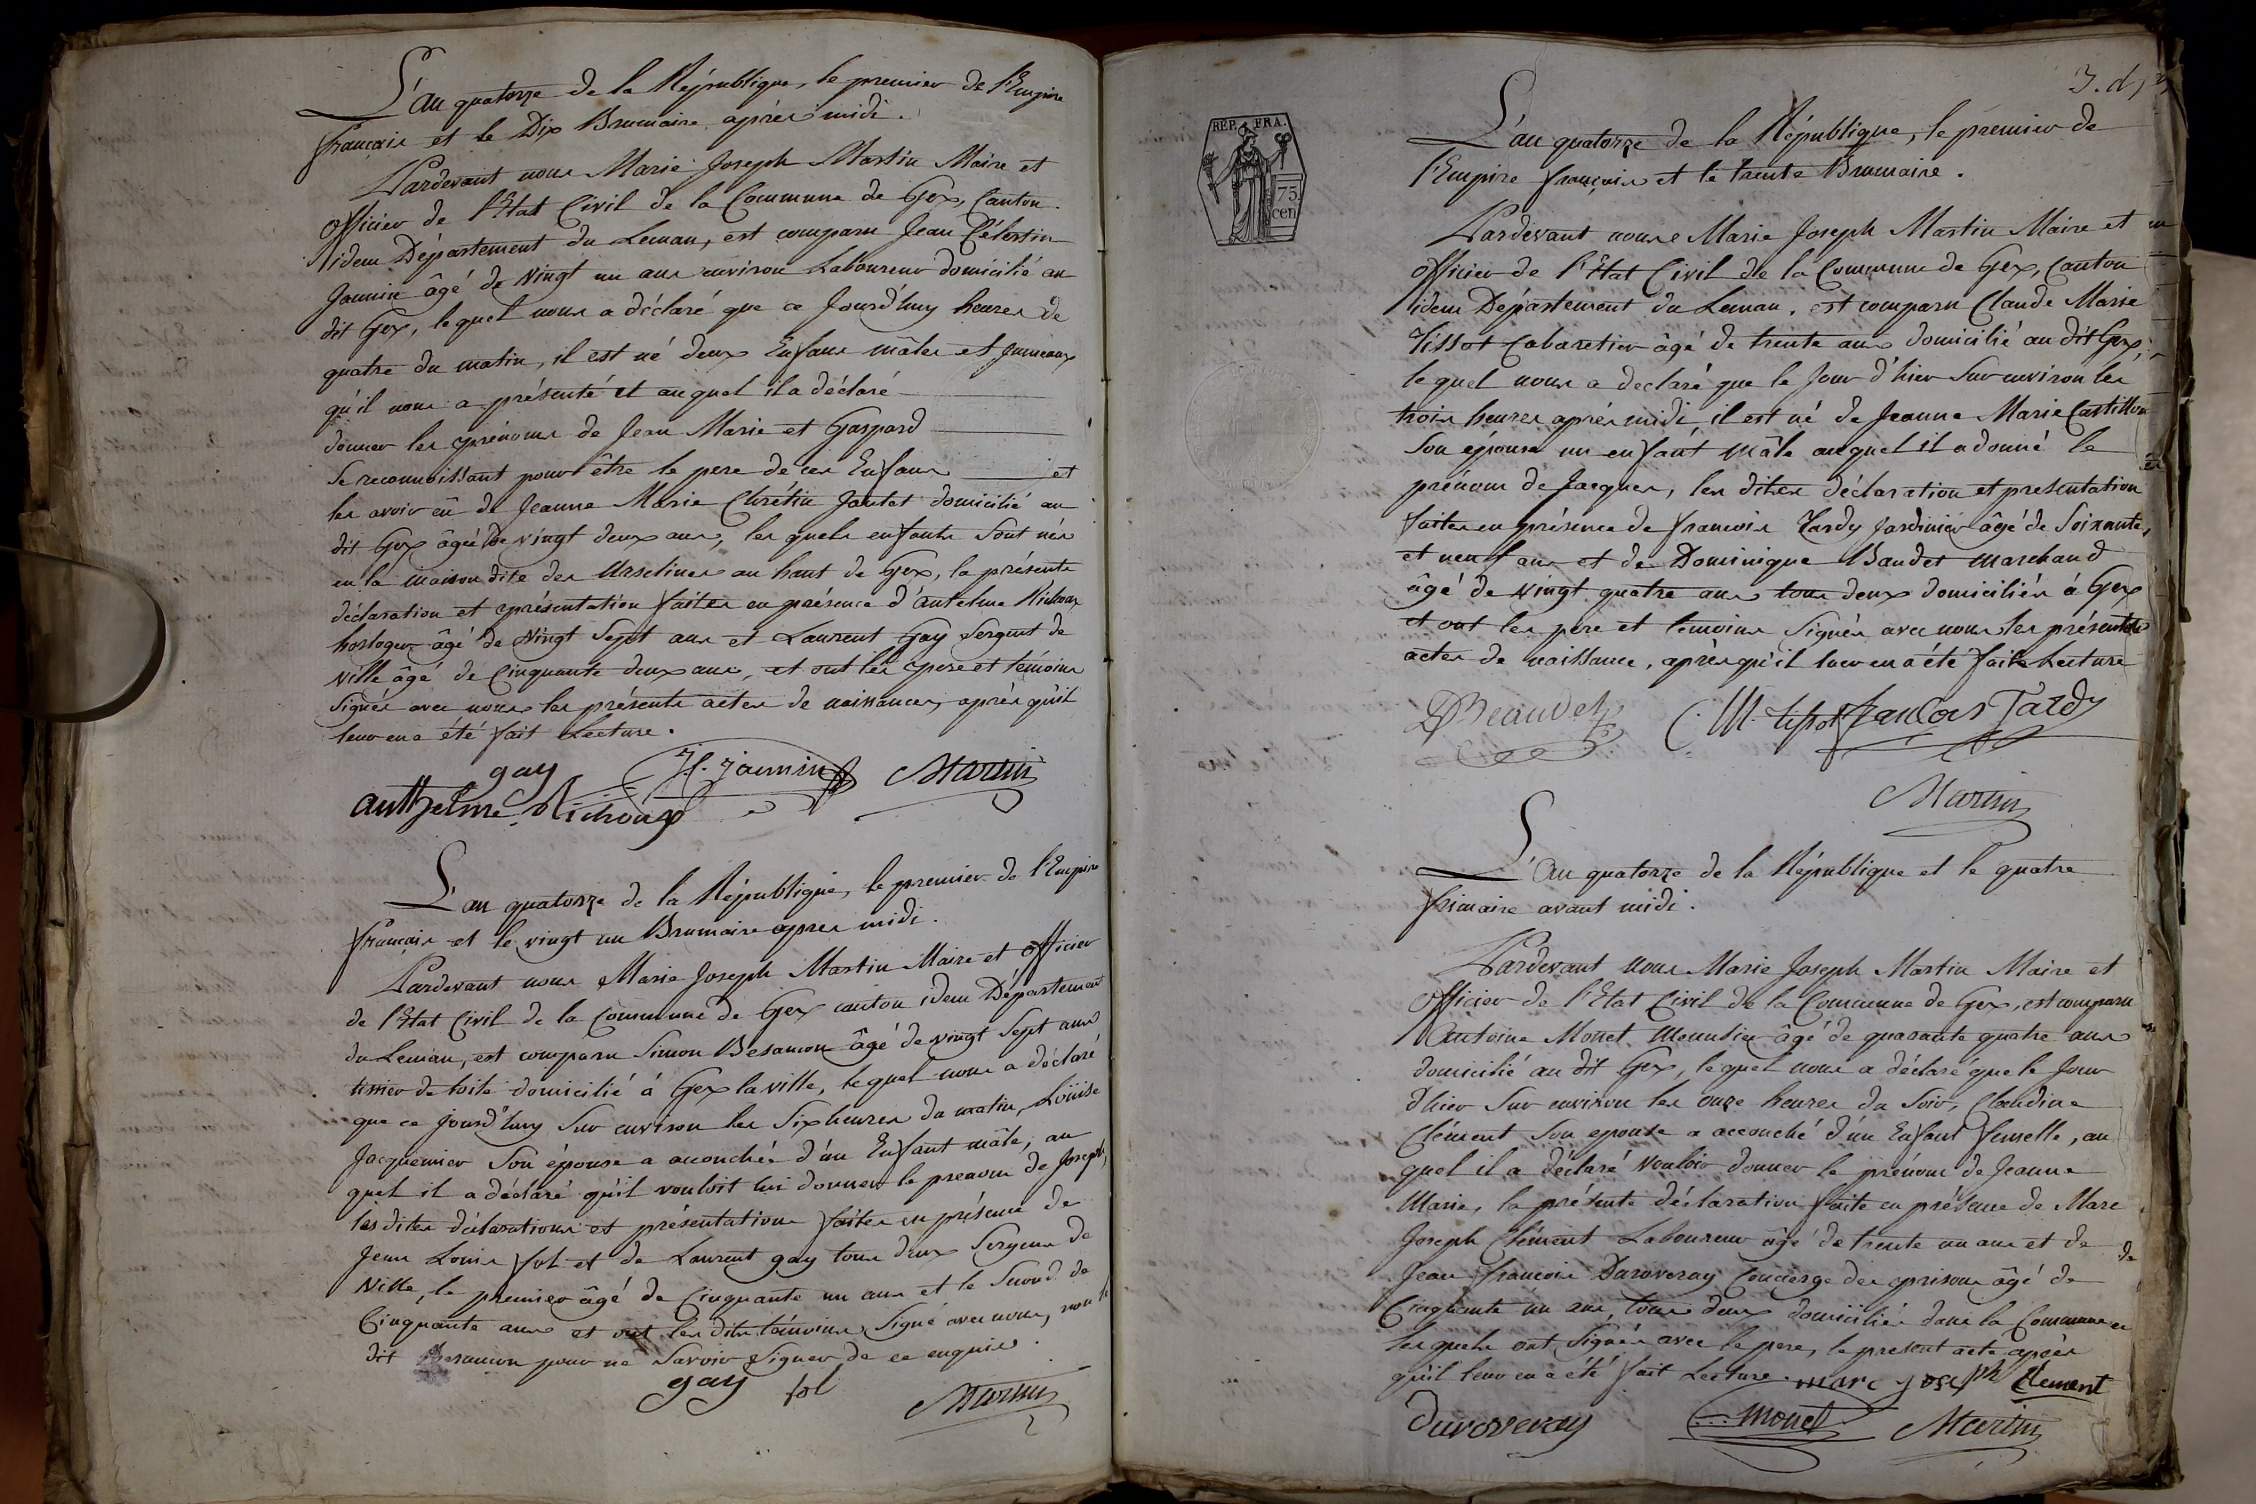 L'an quatorze de la République, le premier de l'Empire
français et le Dix Brumaire après midi.
Pardevant nous Marie Joseph Martin Maire et
officier de l'Etat Civil de la Commune de Gex, Canton
idem Département du Leman, est comparu Jean Célestin
Jannin âgé de vingt un ans environ Laboureur domicilié au
dit Gex, lequel nous a déclaré que ce Jourd'huy heures de
quatre du matin, il est né deux Enfans mâles et Jumeaux
qu'il nous a présenté et auquel il a déclaré
donner les prénoms de Jean Marie et Gaspard
se reconnoissant pour être le pere de ces Enfans et
les avoir eû de Jeanne Marie Chrétin domicilié au
dit Gex âgée de vingt deux ans, les quels enfants sont nés
en la maison dite des Urselines au haut de Gex, la présente
déclaration et présentation faites en présence d'antelme Richoux
horloger âgé de vingt sept ans et Laurent Gay Sergent de
ville âgé de Cinquante deux ans, et ont les pere et témoins
Signés avec nous les présents actes de naissances, après qu'il
leur en a été fait Lecture.
gay J.C. jannin Martin
antthelme Richoux
L'an quatorze de la République, le premier de l'Empire
français et le vingt un Brumaire apres midi.
Pardevant nous Marie Joseph Martin Maire et officier
de l'Etat Civil de la Commune de Gex canton idem Département
du Leman, est comparu Simon Besancon âgé de vingt Sept ans
tissier de toile domicilié à Gex la ville, lequel nous a déclaré
que ce jourd'huy Sur environ les Six heures du matin, Louise
Jacquemier Son épouse a accouchée d'un Enfant mâle, au
quel il a déclaré qu'il vouloit lui donner le prenom de Joseph,
les dites déclarations et présentations faites en présence de
Jean Louis fol et de Laurent gay tous deux Sergens de
Ville, le premier âgé de Cinquante un ans et le Second de
Cinquante ans et ont les dits témoins Signé avec nous, non le
dit Besancon pour ne Savoir Signer de ce enquis.
gay fol Martin
3.
REP. FRA.
75
cen
L'an quatorze de la République, le premier de
l'Empire français et le trente Brumaire.
Pardevant nous Marie Joseph Martin Maire et
officier de l'Etat Civil de la Commune de Gex, Canton
idem Département du Leman, est comparu Claude Marie
Tissot Cabaretier âgé de trente ans domicilié au dit Gex,
lequel nous a declaré que le Jour d'hier Sur environ les
trois heures après midi il est né de Jeanne Marie Castillon
Son épouse un enfant mâle auquel il a donné le
prénom de Jacques, les dites déclaration et presentation
faites en présence de francois Tardy Jardinier âgé de Soixante
et neuf ans et de Dominique Baudet marchand
âgé de vingt quatre ans tous deux domiciliés à Gex
et ont les pere et temoins Signés avec nous les présents
actes de naissance, après qu'il leur en a été faite Lecture
D Beaudet C. M. tissot francois Tardy
Martin
L'an quatorze de la République et le quatre
frimaire avant midi.
Pardevant nous Marie Joseph Martin Maire et
officier de l'Etat Civil de la Commune de Gex, est comparu
Antoine Monet Menusier âgé de quarante quatre ans
domicilié au dit Gex, lequel nous a déclaré que le Jour
d'hier Sur environ les onze heures du Soir, Claudine
Clément Son epouse a accouché d'un Enfant femelle, au
quel il a déclaré vouloir donner le prénom de Jeanne
Marie, la présente déclaration faite en présence de Marc
Joseph Clément Laboureur âgé de trente un ans et de
Jean francois Duroveray Concierge des prisons âgé de
Cinquante un ans, tous deux domiciliés dans la Commune
les quels ont Signés avec le pere, le present acte après
qu'il leur en a été fait Lecture. marc joseph Clement
Duroveray monet Martin